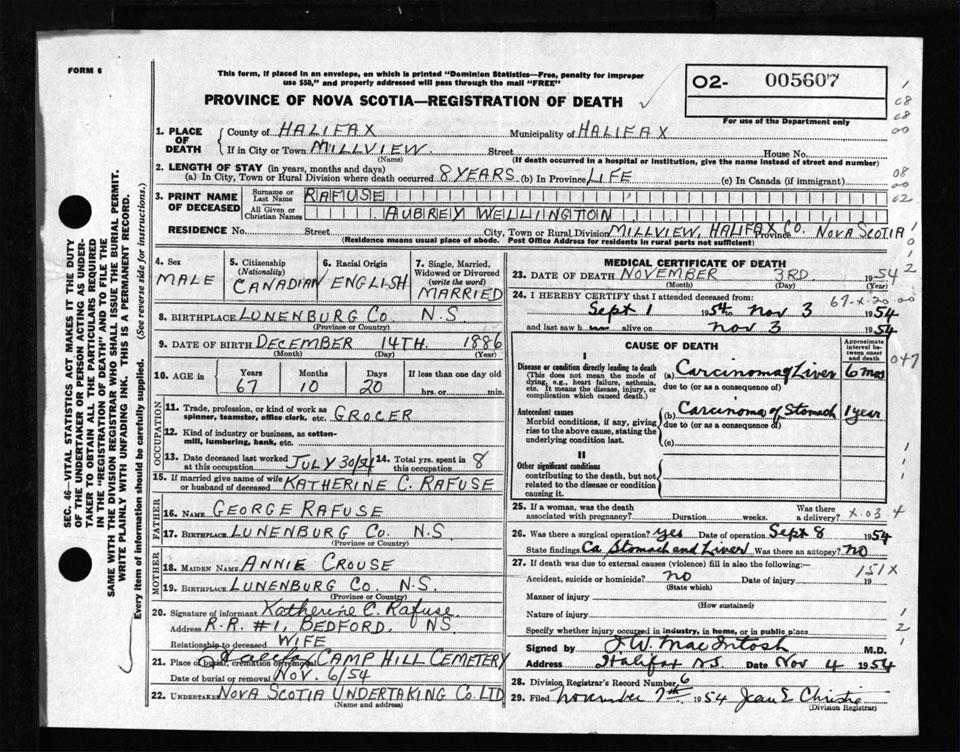 FORM 6
This form, if placed in an envelope, on which is printed "Dominion Statistics—Free, penalty for improper
use $50," and properly addressed will pass through the mail "FREE"
PROVINCE OF NOVA SCOTIA—REGISTRATION OF DEATH
02- 005607
For use of the Department only
1. PLACE OF DEATH
County of HALIFAX Municipality of HALIFAX
If in City or Town MILLVIEW Street House No.
(Name) (If death occurred in a hospital or institution, give the name instead of street and number)
2. LENGTH OF STAY (in years, months and days)
(a) In City, Town or Rural Division where death occurred 8 YEARS (b) In Province LIFE (c) In Canada (if immigrant)
3. PRINT NAME OF DECEASED
Surname or Last Name RAFUSE
All Given or Christian Names AUBREY WELLINGTON
RESIDENCE No. Street City, Town or Rural Division MILLVIEW, HALIFAX Co. Province NOVA SCOTIA
(Residence means usual place of abode. Post Office Address for residents in rural parts not sufficient)
4. Sex MALE
5. Citizenship (Nationality) CANADIAN
6. Racial Origin ENGLISH
7. Single, Married, Widowed or Divorced (write the word) MARRIED
8. BIRTHPLACE LUNENBURG Co. N.S.
(Province or Country)
9. DATE OF BIRTH DECEMBER 14TH. 1886
(Month) (Day) (Year)
10. AGE in Years Months Days If less than one day old
67 10 20 hrs. or min.
OCCUPATION
11. Trade, profession, or kind of work as
spinner, teamster, office clerk, etc. GROCER
12. Kind of industry or business, as cotton-
mill, lumbering, bank, etc.
13. Date deceased last worked at this occupation JULY 30/54 14. Total yrs. spent in this occupation 8
15. If married give name of wife or husband of deceased KATHERINE C. RAFUSE
FATHER
16. Name GEORGE RAFUSE
17. Birthplace LUNENBURG Co. N.S.
(Province or Country)
MOTHER
18. Maiden Name ANNIE CROUSE
19. Birthplace LUNENBURG Co. N.S.
(Province or Country)
20. Signature of informant Katherine C. Rafuse
Address R.R. #1, BEDFORD, NS
Relationship to deceased WIFE
21. Place of burial, cremation or removal Halifax CAMP HILL CEMETERY
Date of burial or removal NOV. 6/54
22. Undertaker NOVA SCOTIA UNDERTAKING CO. LTD
(Name and address)
MEDICAL CERTIFICATE OF DEATH
23. DATE OF DEATH NOVEMBER 3RD 1954
(Month) (Day) (Year)
24. I HEREBY CERTIFY that I attended deceased from: 67-X-20
Sept 1 1954 to Nov 3 1954
and last saw h alive on Nov 3 1954
CAUSE OF DEATH
Approximate interval between onset and death
I
Disease or condition directly leading to death (a) Carcinoma of Liver 6 mos
(This does not mean the mode of dying, e.g., heart failure, asthenia, etc. It means the disease, injury, or complication which caused death.)
due to (or as a consequence of)
Antecedent causes (b) Carcinoma of Stomach 1 year
Morbid conditions, if any, giving rise to the above cause, stating the underlying condition last.
due to (or as a consequence of)
(c)
II
Other significant conditions
contributing to the death, but not related to the disease or condition causing it.
25. If a woman, was the death associated with pregnancy? Duration weeks. Was there a delivery?
26. Was there a surgical operation? yes Date of operation Sept 8 1954
State findings Ca Stomach and Liver Was there an autopsy? no
27. If death was due to external causes (violence) fill in also the following:—
151X
Accident, suicide or homicide? no Date of injury 19
(State which)
Manner of injury
(How sustained)
Nature of injury
Specify whether injury occurred in industry, in home, or in public place
Signed by J.W. MacIntosh M.D.
Address Halifax N.S. Date Nov 4 1954
28. Division Registrar's Record Number 6
29. Filed November 7th 1954 Jean E Christie
(Division Registrar)
SEC. 46—VITAL STATISTICS ACT MAKES IT THE DUTY
OF THE UNDERTAKER OR PERSON ACTING AS UNDER-
TAKER TO OBTAIN ALL THE PARTICULARS REQUIRED
IN THE "REGISTRATION OF DEATH" AND TO FILE THE
SAME WITH THE DIVISION REGISTRAR WHO SHALL ISSUE THE BURIAL PERMIT.
WRITE PLAINLY WITH UNFADING INK. THIS IS A PERMANENT RECORD.
Every item of information should be carefully supplied. (See reverse side for instructions.)